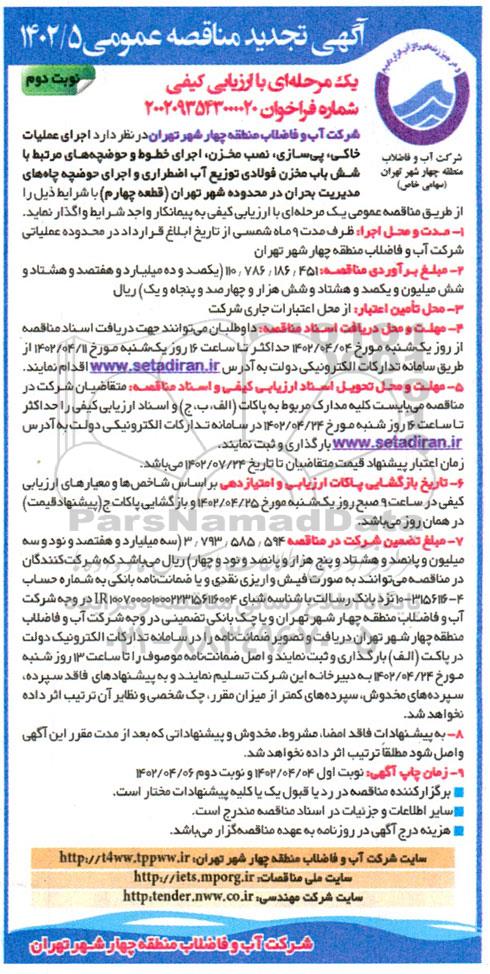 آگهی تجدید مناقصه عمومی ۱۴۰۲/۵
نوبت دوم
یک مرحله‌ای با ارزیابی کیفی
شماره فراخوان ۲۰۰۲۰۹۳۵۴۳۰۰۰۰۲۰
شرکت آب و فاضلاب
منطقه چهار شهر تهران
(سهامی خاص)
شرکت آب و فاضلاب منطقه چهار شهر تهران در نظر دارد اجرای عملیات
خاکی، پی‌سازی، نصب مخزن، اجرای خطوط و حوضچه‌های مرتبط با
شش باب مخزن فولادی توزیع آب اضطراری و اجرای حوضچه چاه‌های
مدیریت بحران در محدوده شهر تهران (قطعه چهارم) با شرایط ذیل را
از طریق مناقصه عمومی یک مرحله‌ای با ارزیابی کیفی به پیمانکار واجد شرایط واگذار نماید.
۱- مدت و محل اجرا: ظرف مدت ۹ ماه شمسی از تاریخ ابلاغ قرارداد در محدوده عملیاتی
شرکت آب و فاضلاب منطقه چهار شهر تهران
۲- مبلغ برآوردی مناقصه: ۱۱۰,۷۸۶,۱۸۶,۴۵۱ (یکصد و ده میلیارد و هفتصد و هشتاد و
شش میلیون و یکصد و هشتاد و شش هزار و چهارصد و پنجاه و یک) ریال
۳- محل تأمین اعتبار: از محل اعتبارات جاری شرکت
۴- مهلت و محل دریافت اسناد مناقصه: داوطلبان می‌توانند جهت دریافت اسناد مناقصه
از روز یک‌شنبه مورخ ۱۴۰۲/۰۴/۰۴ حداکثر تا ساعت ۱۶ روز یک‌شنبه مورخ ۱۴۰۲/۰۴/۱۱ از
طریق سامانه تدارکات الکترونیکی دولت به آدرس www.setadiran.ir اقدام نمایند.
۵- مهلت و محل تحویل اسناد ارزیابی کیفی و اسناد مناقصه: متقاضیان شرکت در
مناقصه می‌بایست کلیه مدارک مربوط به پاکات (الف، ب، ج) و اسناد ارزیابی کیفی را حداکثر
تا ساعت ۱۶ روز شنبه مورخ ۱۴۰۲/۰۴/۲۴ در سامانه تدارکات الکترونیکی دولت به آدرس
www.setadiran.ir بارگذاری و ثبت نمایند.
زمان اعتبار پیشنهاد قیمت متقاضیان تا تاریخ ۱۴۰۲/۰۷/۲۴ می‌باشد.
۶- تاریخ بازگشایی پاکات ارزیابی و امتیازدهی بر اساس شاخص‌ها و معیارهای ارزیابی
کیفی در ساعت ۹ صبح روز یک‌شنبه مورخ ۱۴۰۲/۰۴/۲۵ و بازگشایی پاکات ج (پیشنهاد قیمت)
در همان روز می‌باشد.
۷- مبلغ تضمین شرکت در مناقصه ۳,۷۹۳,۵۸۵,۵۹۴ (سه میلیارد و هفتصد و نود و سه
میلیون و پانصد و هشتاد و پنج هزار و پانصد و نود و چهار) ریال می‌باشد که شرکت‌کنندگان
در مناقصه می‌توانند به صورت فیش واریزی نقدی و یا ضمانت‌نامه بانکی به شماره حساب
۲-۱۰۰۳۱۵۶۱۱۶ نزد بانک رسالت با شناسه شبای IR در وجه شرکت
آب و فاضلاب منطقه چهار شهر تهران و یا چک بانکی تضمینی در وجه شرکت آب و فاضلاب
منطقه چهار شهر تهران دریافت و تصویر ضمانت‌نامه را در سامانه تدارکات الکترونیک دولت
در پاکت (الف) بارگذاری و ثبت نمایند و اصل ضمانت‌نامه موصوف را تا ساعت ۱۳ روز شنبه
مورخ ۱۴۰۲/۰۴/۲۴ به دبیرخانه این شرکت تسلیم نمایند و به پیشنهادهای فاقد سپرده،
سپرده‌های مخدوش، سپرده‌های کمتر از میزان مقرر، چک شخصی و نظایر آن ترتیب اثر داده
نخواهد شد.
۸- به پیشنهادات فاقد امضا، مشروط، مخدوش و پیشنهاداتی که بعد از مدت مقرر این آگهی
واصل شود مطلقاً ترتیب اثر داده نخواهد شد.
۹- زمان چاپ آگهی: نوبت اول ۱۴۰۲/۰۴/۰۴ و نوبت دوم ۱۴۰۲/۰۴/۰۶
■ برگزارکننده مناقصه در رد یا قبول یک یا کلیه پیشنهادات مختار است.
■ سایر اطلاعات و جزئیات در اسناد مناقصه مندرج است.
■ هزینه درج آگهی در روزنامه به عهده مناقصه‌گزار می‌باشد.
سایت شرکت آب و فاضلاب منطقه چهار شهر تهران: http://t4ww.tppww.ir
سایت ملی مناقصات: http://iets.mporg.ir
سایت شرکت مهندسی: http:tender.nww.co.ir
شرکت آب و فاضلاب منطقه چهار شهر تهران
ParsNamadData